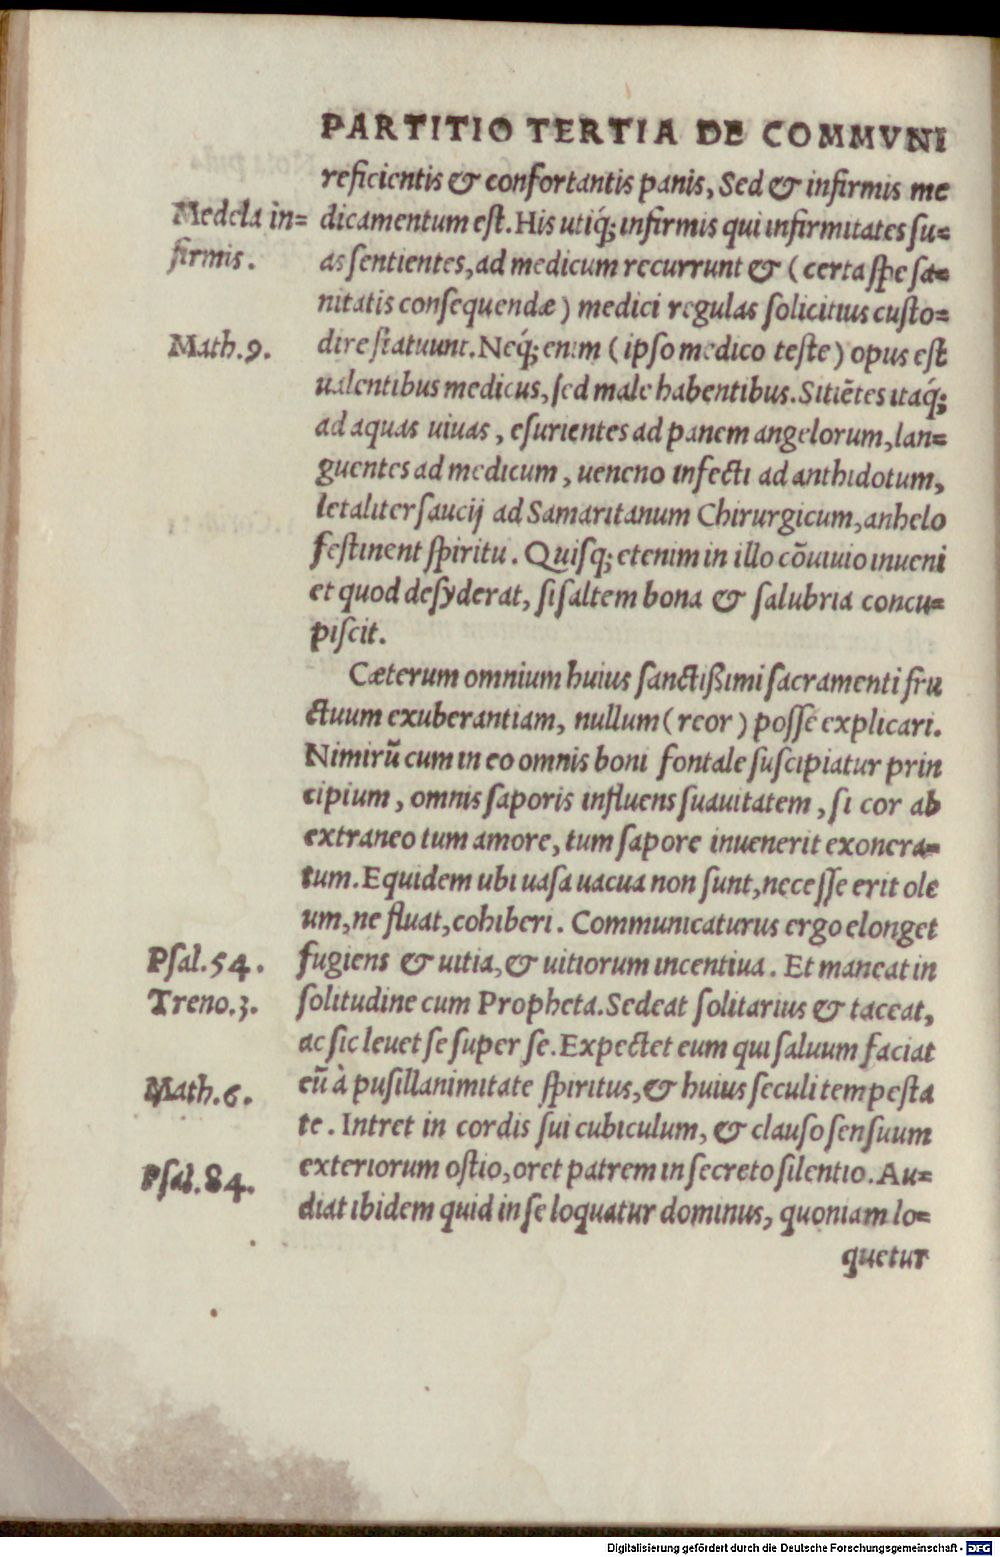 PARTITIO TERTIA DE COMMVNI
reficientis & confortantis panis, Sed & infirmis me
Medela in=
dicamentum est. His utiq́; infirmis qui infirmitates su=
firmis.
as sentientes, ad medicum recurrunt & (certa spe sa=
nitatis consequendæ) medici regulas solicitius custo=
Math.9.
dire statuunt. Neq́; enim (ipso medico teste) opus est
ualentibus medicus, sed male habentibus. Sitiẽtes itaq́;
ad aquas uiuas, esurientes ad panem angelorum, lan=
guentes ad medicum, ueneno infecti ad anthidotum,
letaliter saucij ad Samaritanum Chirurgicum, anhelo
festinent spiritu. Quisq; etenim in illo cõuiuio inueni
et quod desyderat, si saltem bona & salubria concu=
piscit.
Cæterum omnium huius sanctißimi sacramenti fru
ctuum exuberantiam, nullum (reor) posse explicari.
Nimirũ cum in eo omnis boni fontale suscipiatur prin
cipium, omnis saporis influens suauitatem, si cor ab
extraneo tum amore, tum sapore inuenerit exonera=
tum. Equidem ubi uasa uacua non sunt, necesse erit ole
um, ne fluat, cohiberi. Communicaturus ergo elonget
Psal.54.
fugiens & uitia, & uitiorum incentiua. Et maneat in
Treno.3.
solitudine cum Propheta. Sedeat solitarius & taceat,
ac sic leuet se super se. Expectet eum qui saluum faciat
Math.6.
eũ à pusillanimitate spiritus, & huius seculi tempesta
te. Intret in cordis sui cubiculum, & clauso sensuum
Psal.84.
exteriorum ostio, oret patrem in secreto silentio. Au=
diat ibidem quid in se loquatur dominus, quoniam lo=
quetur
Digitalisierung gefördert durch die Deutsche Forschungsgemeinschaft - DFG